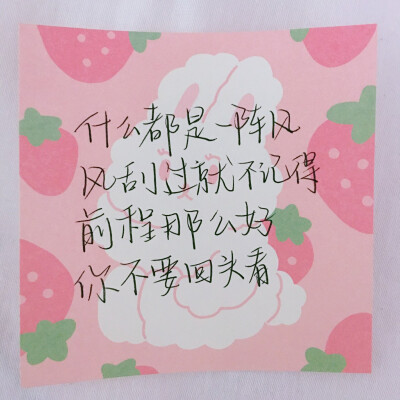 什么都是一阵风
风刮过就不记得
前程那么好
你不要回头看